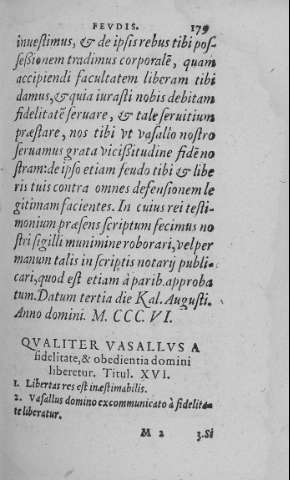 FEVDIS. 179
inuestimus, & de ipsis rebus tibi pos-
seßionem tradimus corporalē, quam
accipiendi facultatem liberam tibi
damus, & quia iurasti nobis debitam
fidelitatē seruare, & tale seruitium
præstare, nos tibi vt vasallo nostro
seruamus grata vicißitudine fidē no
stram: de ipso etiam feudo tibi & libe
ris tuis contra omnes defensionem le
gitimam facientes. In cuius rei testi-
monium præsens scriptum fecimus no
stri sigilli munimine roborari, vel per
manum talis in scriptis notarij publi-
cari, quod est etiam à parib. approba
tum. Datum tertia die Kal. Augusti.
Anno domini. M. CCC. VI.
QVALITER VASALLVS A
fidelitate, & obedientia domini
liberetur. Titul. XVI.
1. Libertas res est inæstimabilis.
2. Vasallus domino excommunicato à fidelita-
te liberatur.
M 2 3. Si